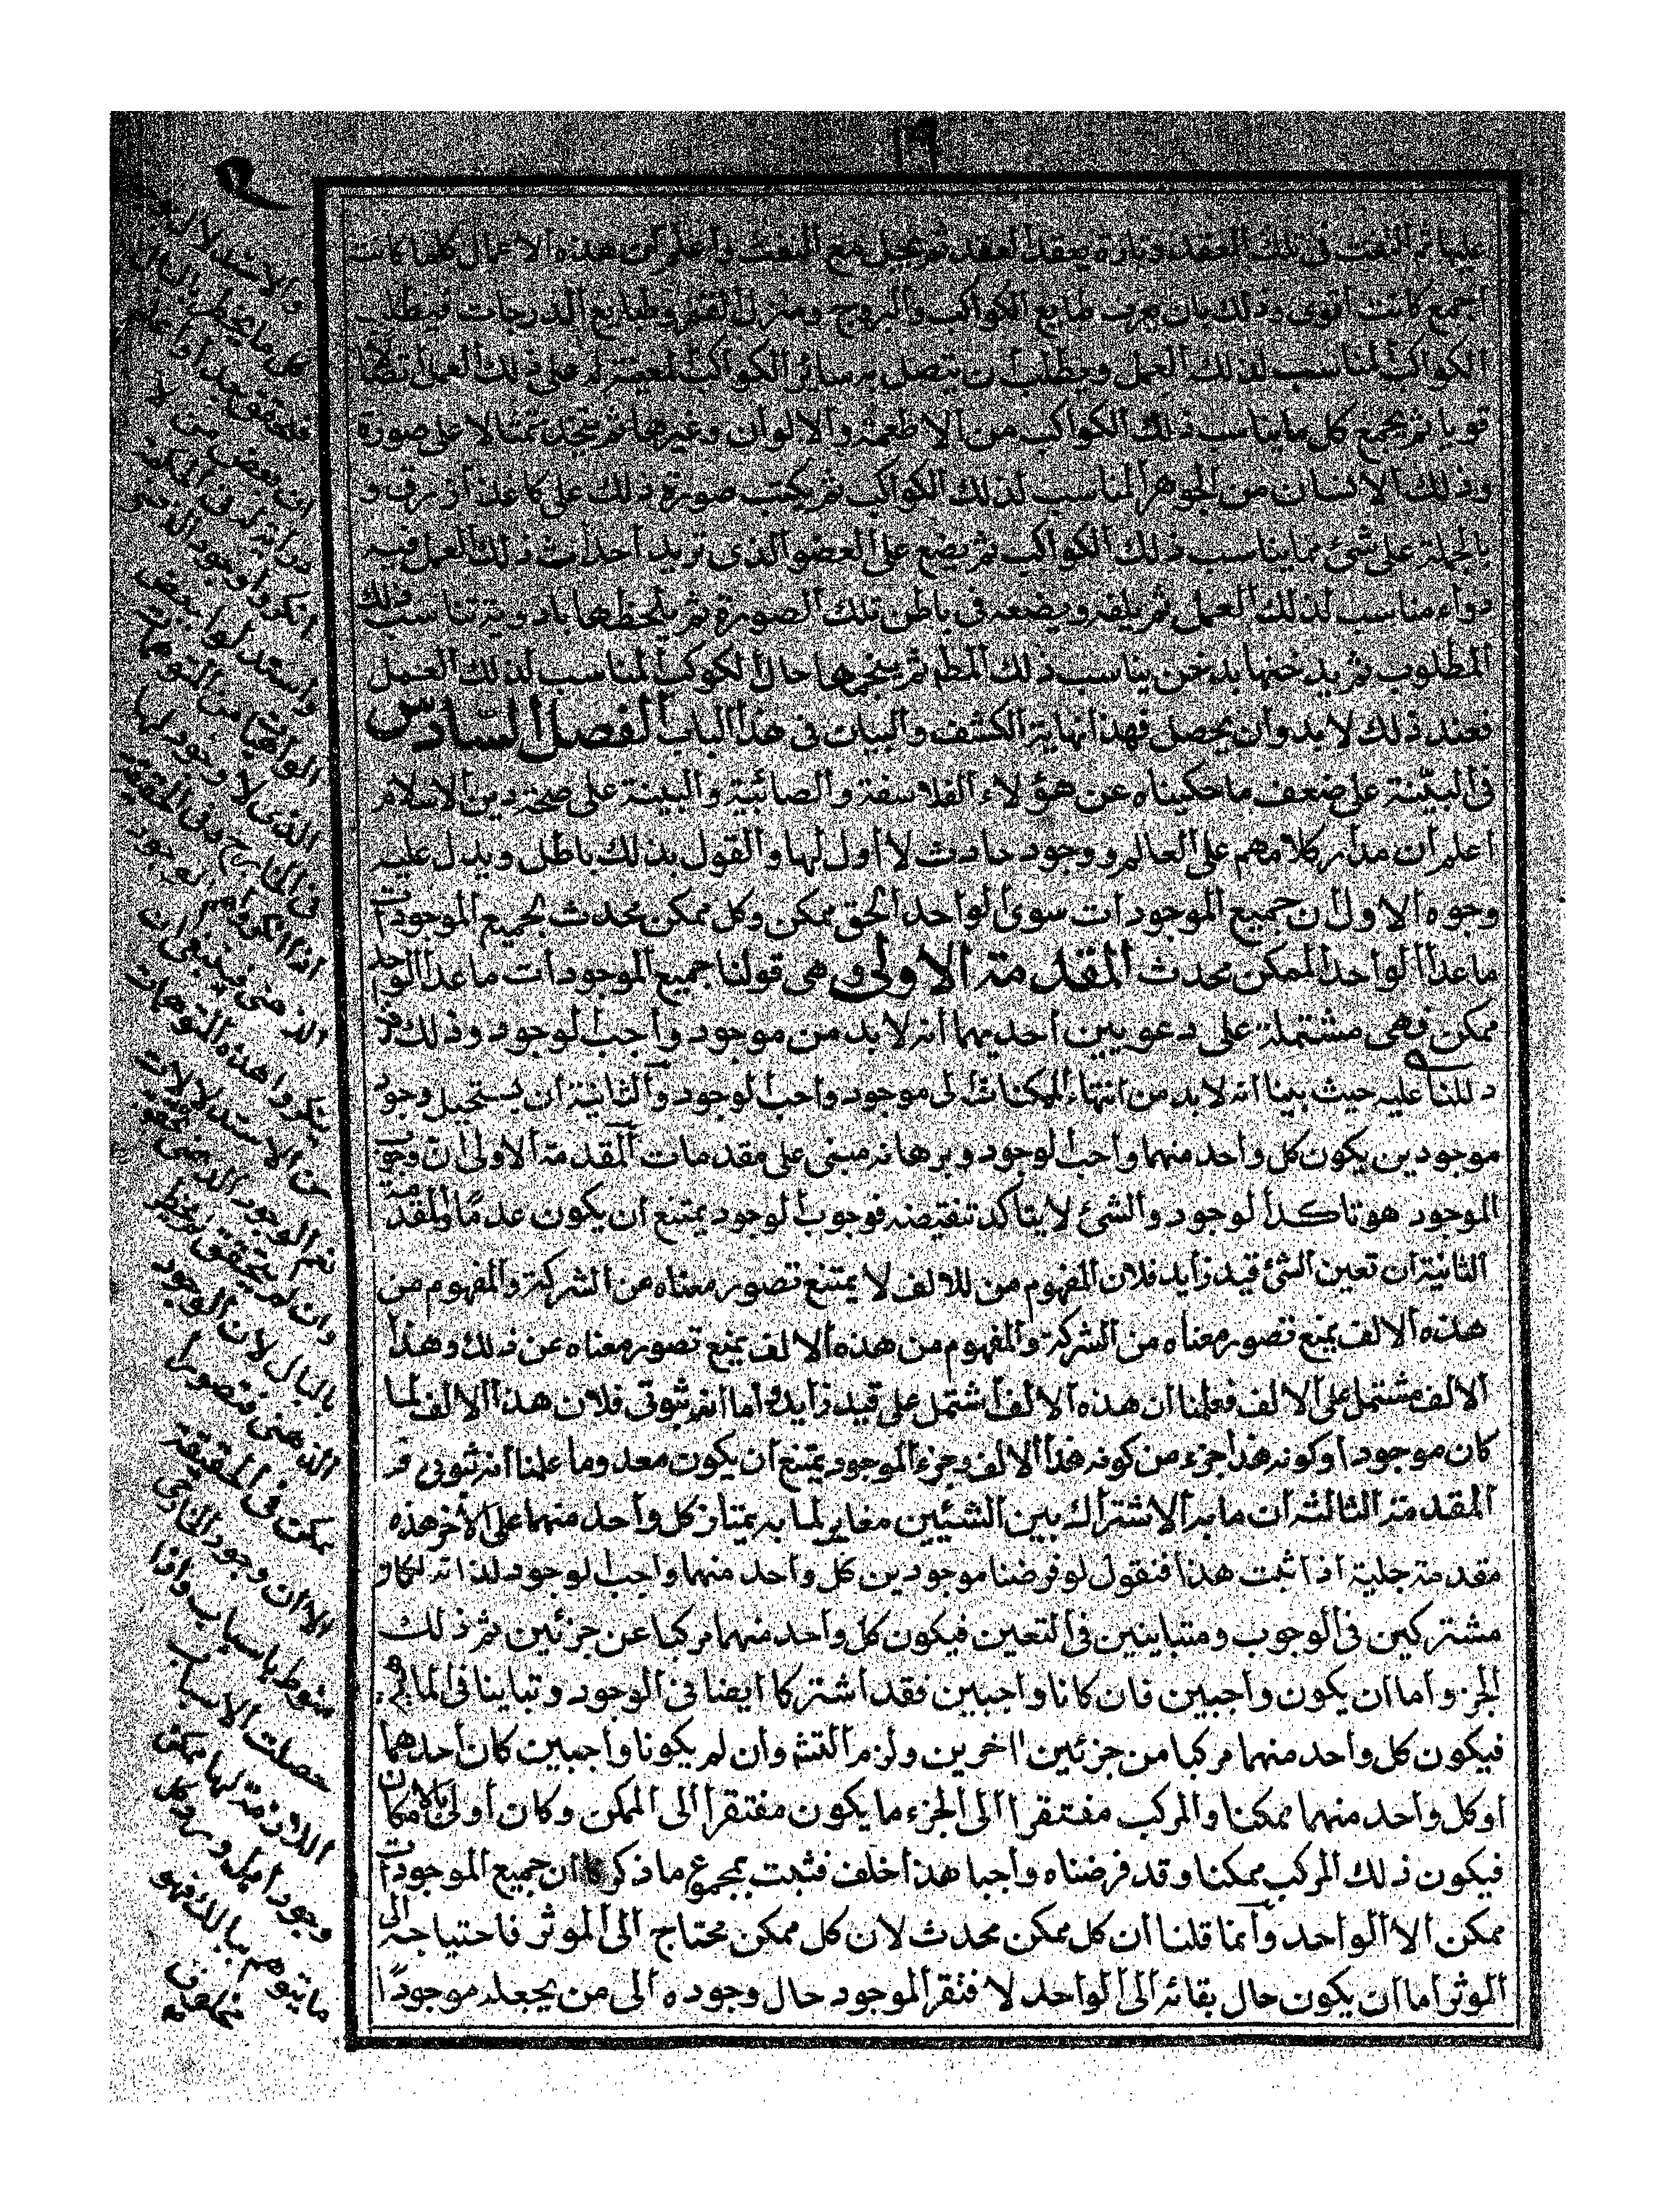 ١٩
عليها ثم النفث فى تلك العقد وتارة يعقد العقد ثم يجعل مع النفث واعلم أن هذه الاعمال كلما كانت
أجمع كانت أقوى وذلك بان يعرف طبايع الكواكب والبروج ومنزل القمر وطبايع الدرجات فيطلب
الكواكب المناسب لذلك العمل ويطلب أن يتصل به سائر الكواكب المعينة له على ذلك العمل اتصالا
قويا ثم يجمع كل ما يناسب ذلك الكواكب من الاطعمة والالوان وغيرها ثم يتخذ تمثالا على صورة
وذلك الانسان من الجوهر المناسب لذلك الكواكب ثم يكتب صورة ذلك على كاغذ أزرق و
بالجملة على شئ مما يناسب ذلك الكواكب ثم يضع على العضو الذى تريد أحداث ذلك العمل فيه
دواء مناسب لذلك العمل ثم يلفه ويضعه فى باطن تلك الصورة ثم يلحظها بادوية تناسب ذلك
المطلوب ثم يدخنها بدخن يناسب ذلك المطم ثم ينجمها حال الكوكب المناسب لذلك العمل
فعند ذلك لا بد وأن يحصل فهذا نهاية الكشف والبيان فى هذا الباب الفصل السادس
فى البيّنة على ضعف ما حكيناه عن هؤلاء الفلاسفة والصائبية والبينة على صحة دين الاسلام
اعلم أن مدار كلامهم على العالم ووجود حادث لا أول لها والقول بذلك باطل ويدل عليه
وجوه الاول ان جميع الموجودات سوى الواحد الحق ممكن وكل ممكن محدث لجميع الموجودات
ما عدا الواحد الممكن محدث المقدمة الاولى وهى قولنا جميع الموجودات ما عدا الواحد
ممكن فهى مشتملة على دعويين أحديهما أنه لا بد من موجود واجب الوجود وذلك قد
دللنا عليه حيث بينا انه لا بد من انتهاء الممكنات الى موجود واجب الوجود والثانية أن يستحيل وجود
موجودين يكون كل واحد منهما واجب الوجود وبرهانه مبنى على مقدمات المقدمة الاولى ان وجوب
الموجود هو تاكد الوجود والشئ لا يتاكد بنقيضه فوجوب الوجود يمتنع أن يكون عدمًا والمقدمة
الثانية ان تعين الشئ قيد زايد فلان المفهوم من للالف لا يمتنع تصور معناه من الشركة والمفهوم من
هذه الالف يمنع تصور معناه من الشركة والمفهوم من هذه الالف يمنع تصور معناه عن ذلك وهذا
الالف مشتمل على الالف فعلمنا ان هذه الالف أشتمل على قيد زايد وأما أنه ثبوتى فلان هذا الالف لما
كان موجودا وكونه هذا جزء من كونه هذا الالف وجزء الموجود يمتنع ان يكون معد وما علمنا أنه ثبوتى قد
المقدمة الثالثة ان ما به الاشتراك بين الشئيين مغاير لما به يمتاز كل واحد منهما على الأخر هذه
مقدمة جلية اذا ثبت هذا فنقول لو فرضنا موجودين كل واحد منهما واجب الوجود لذاته لكانا
مشتركين فى الوجوب ومتباينين فى التعين فيكون كل واحد منهما مركبا عن جزئين ثم ذلك
الجزو أما ان يكون واجبين فان كانا واجبين فقد أشتركا ايضا فى الوجود وتباينا فى الماهية
فيكون كل واحد منهما مركبا من جزئين اخرين ولزم التش وأن لم يكونا واجبين كان أحدهما
او كل واحد منهما ممكنا والمركب مفتقرا الى الجزء ما يكون مفتقرا الى الممكن وكان أولى بالامكان
فيكون ذلك المركب ممكنا وقد فرضناه واجبا هذا خلف فثبت بمجموع ما ذكرنا ان جميع الموجودات
ممكن الا الواحد وأنما قلنا أن كل ممكن محدث لان كل ممكن محتاج الى الموثر فاحتياجه الى
الموثر اما ان يكون حال بقائه الى الواحد لا فتقر الموجود حال وجوده الى من يجعله موجودًا
انكروا وجود الذهنى
الذى لا وجود لها
الذهنى فينبغى ان
ينكروا هذه التوهمات
عن الاستدلالات
نعم الوجود الذهنى
وان لم يتحقق لم يخطر
بالبال لان الوجود
الذهنى فتصور
يمكن فى الحقيقة
الا ان وجود الخارجى
منوط باسباب واذا
حصلت الاسباب
اللازمة لها يمكن
وجود وكل
ما يتوهم ببالك فهو
مخلوق